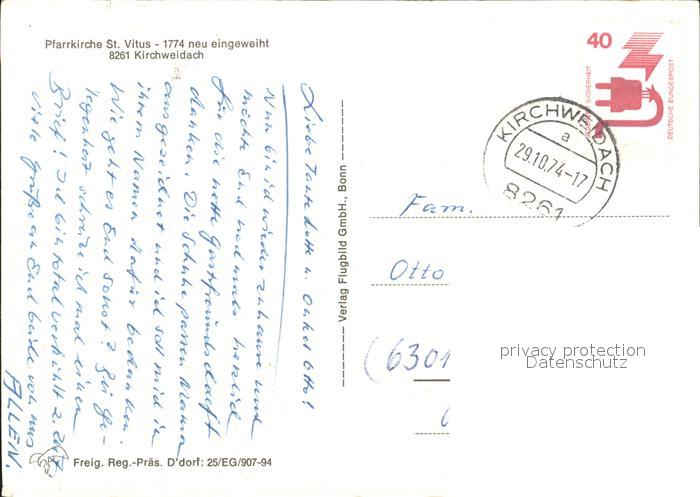 Pfarrkirche St. Vitus - 1774 neu eingeweiht
8261 Kirchweidach
Liebe Tante Lotte u. Onkel Otto!
Nun bin ich wieder zuhause und
möchte Euch nochmals herzlich
für die nette Gastfreundschaft
danken. Die Schuhe passen Mama
ausgezeichnet und ich soll mich in
ihrem Namen dafür bedanken.
Wie geht es Euch sonst? Bei Ge-
legenheit schreibe ich mal einen
Brief! Ich bin total verkühlt z. Zt.
Viele Grüße an Euch beide von uns
ALLEN.
Verlag Flugbild GmbH., Bonn
Freig. Reg.-Präs. D'dorf: 25/EG/907-94
40
SICHERHEIT
DEUTSCHE BUNDESPOST
KIRCHWEIDACH
a
29.10.74-17
8261
Fam.
Otto
(6301
privacy protection
Datenschutz